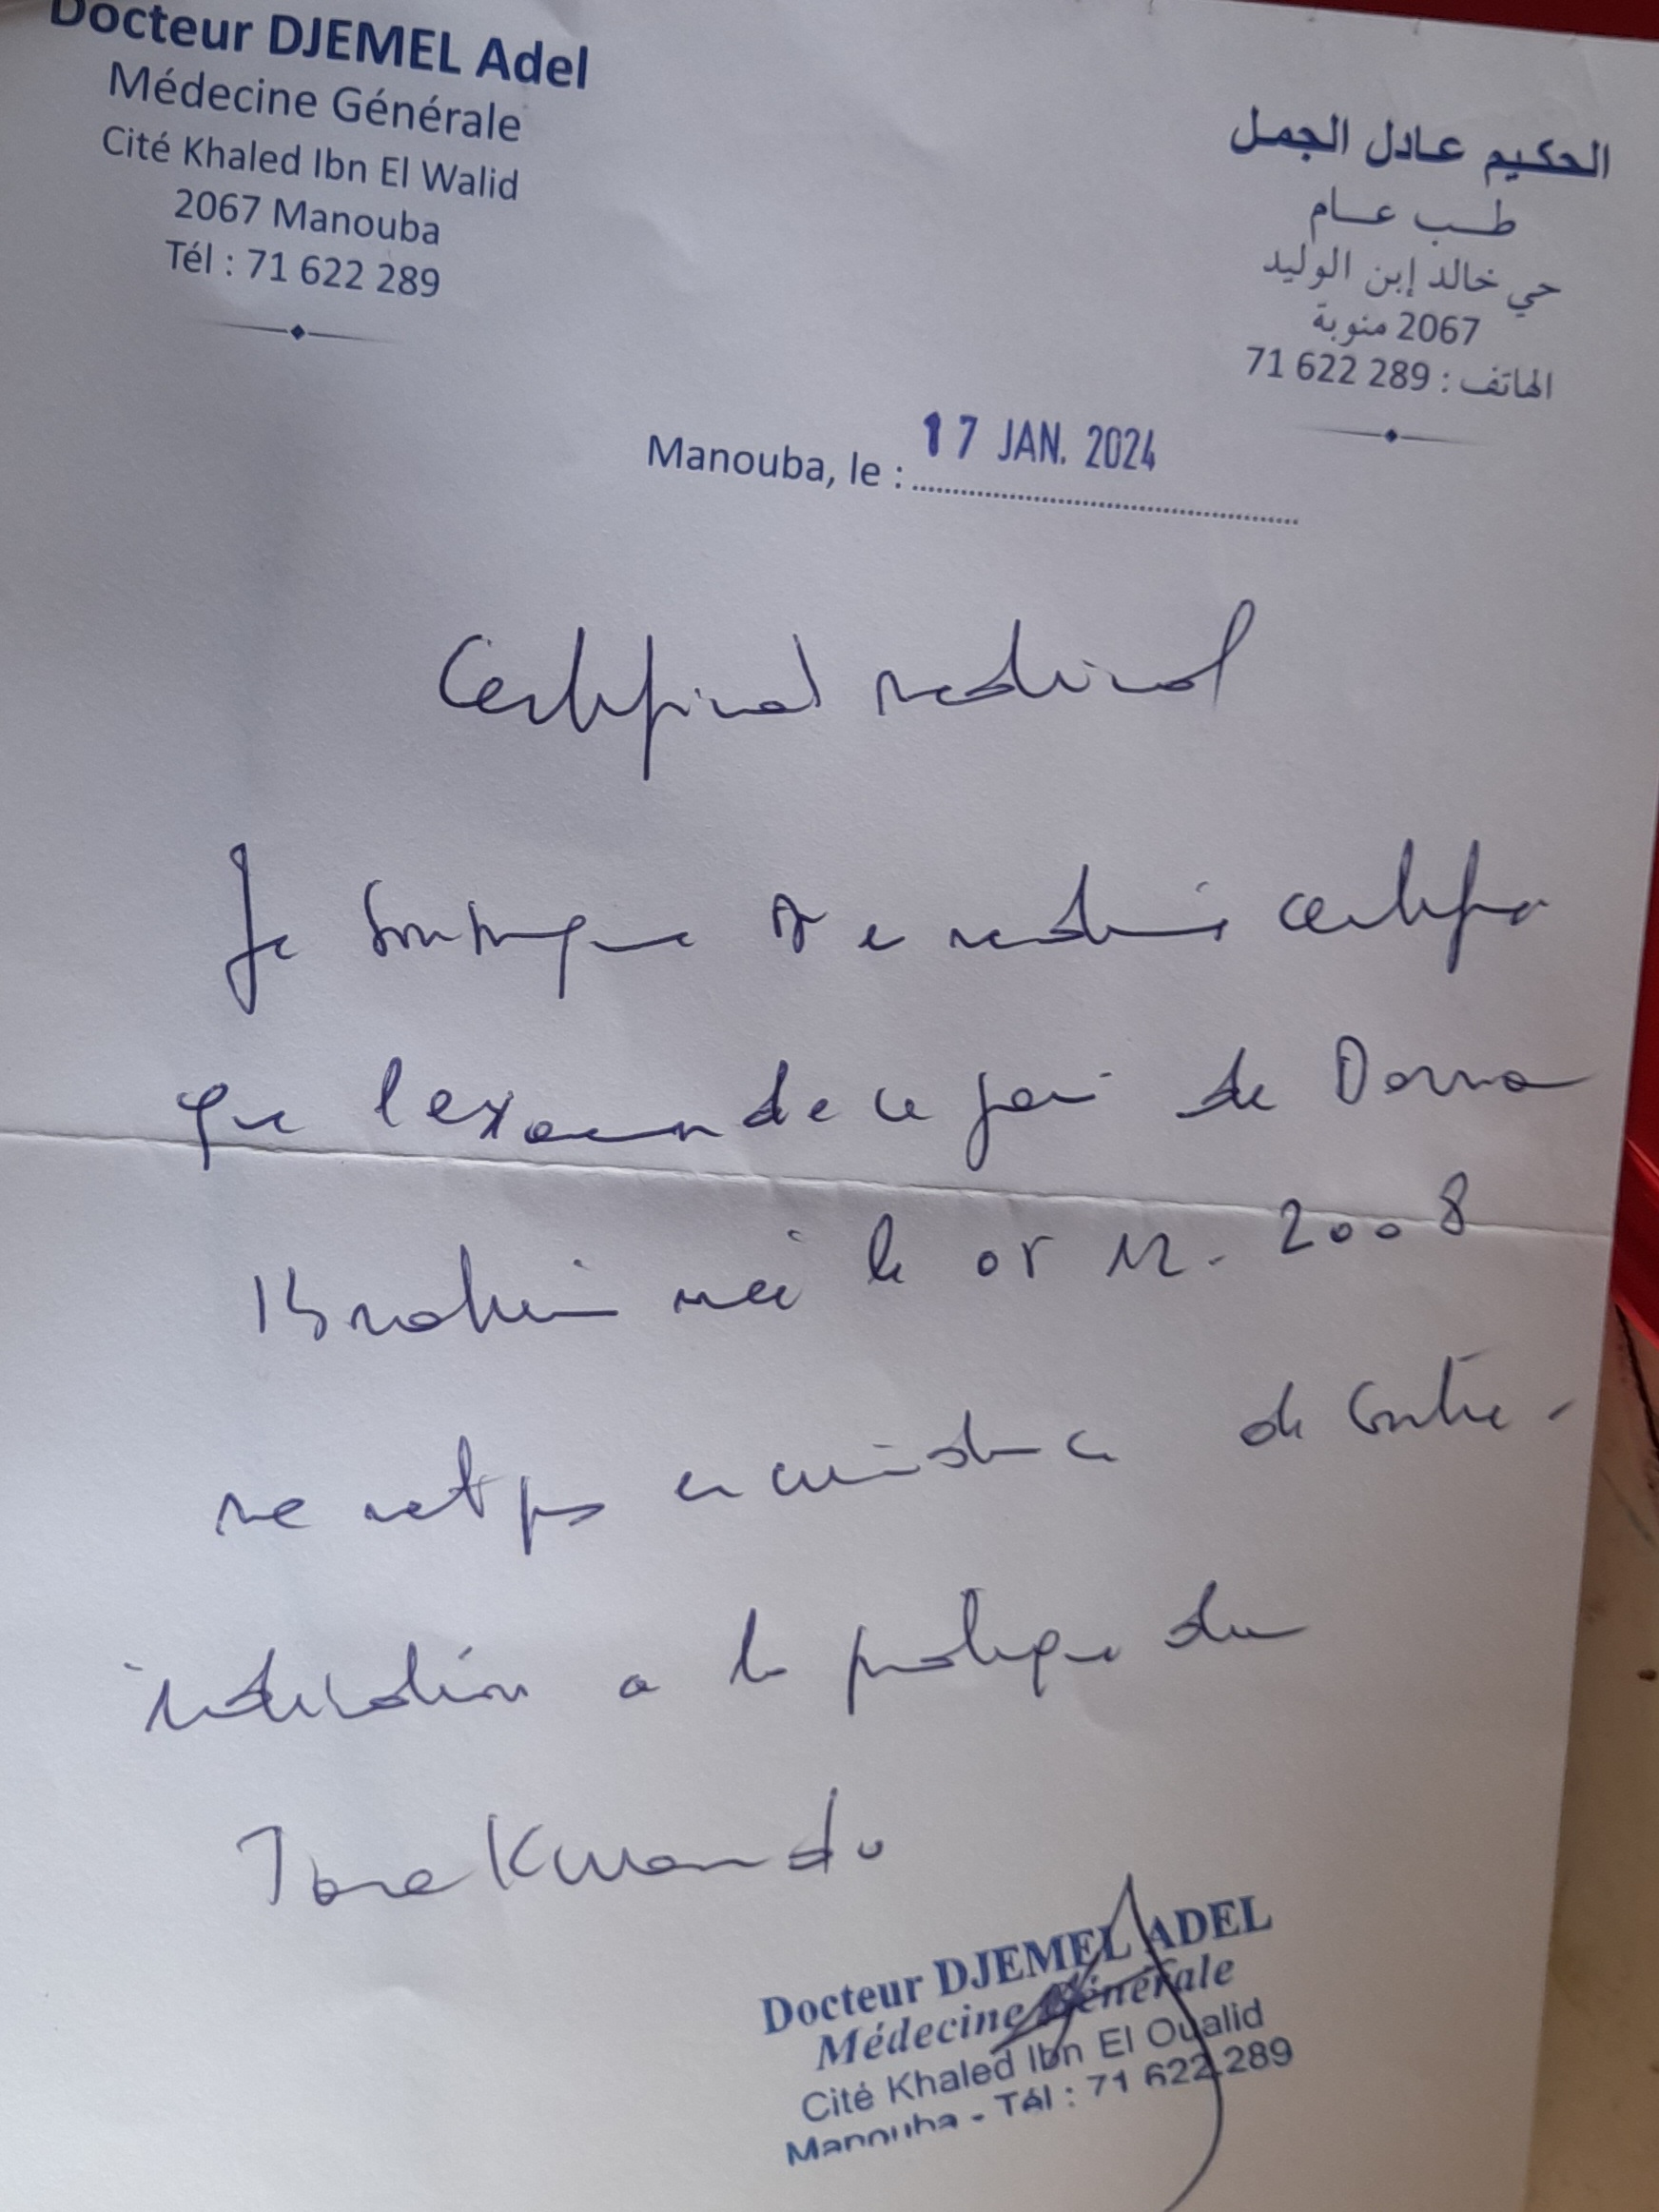 Docteur DJEMEL Adel
Médecine Générale
Cité Khaled Ibn El Walid
2067 Manouba
Tél : 71 622 289
الحكيم عادل الجمل
طب عام
حي خالد إبن الوليد
2067 منوبة
الهاتف : 71 622 289
Manouba, le : 17 JAN. 2024
Certificat medical
Je soussigne Dr en medecine certifie
que l'examen de ce jour de Dorra
Ibrahim née le 05 12. 2008
ne met pas en evidence de contre-
indication a la pratique du
Taekwando
Docteur DJEMEL ADEL
Médecine Générale
Cité Khaled Ibn El Oualid
Manouba - Tél : 71 622 289